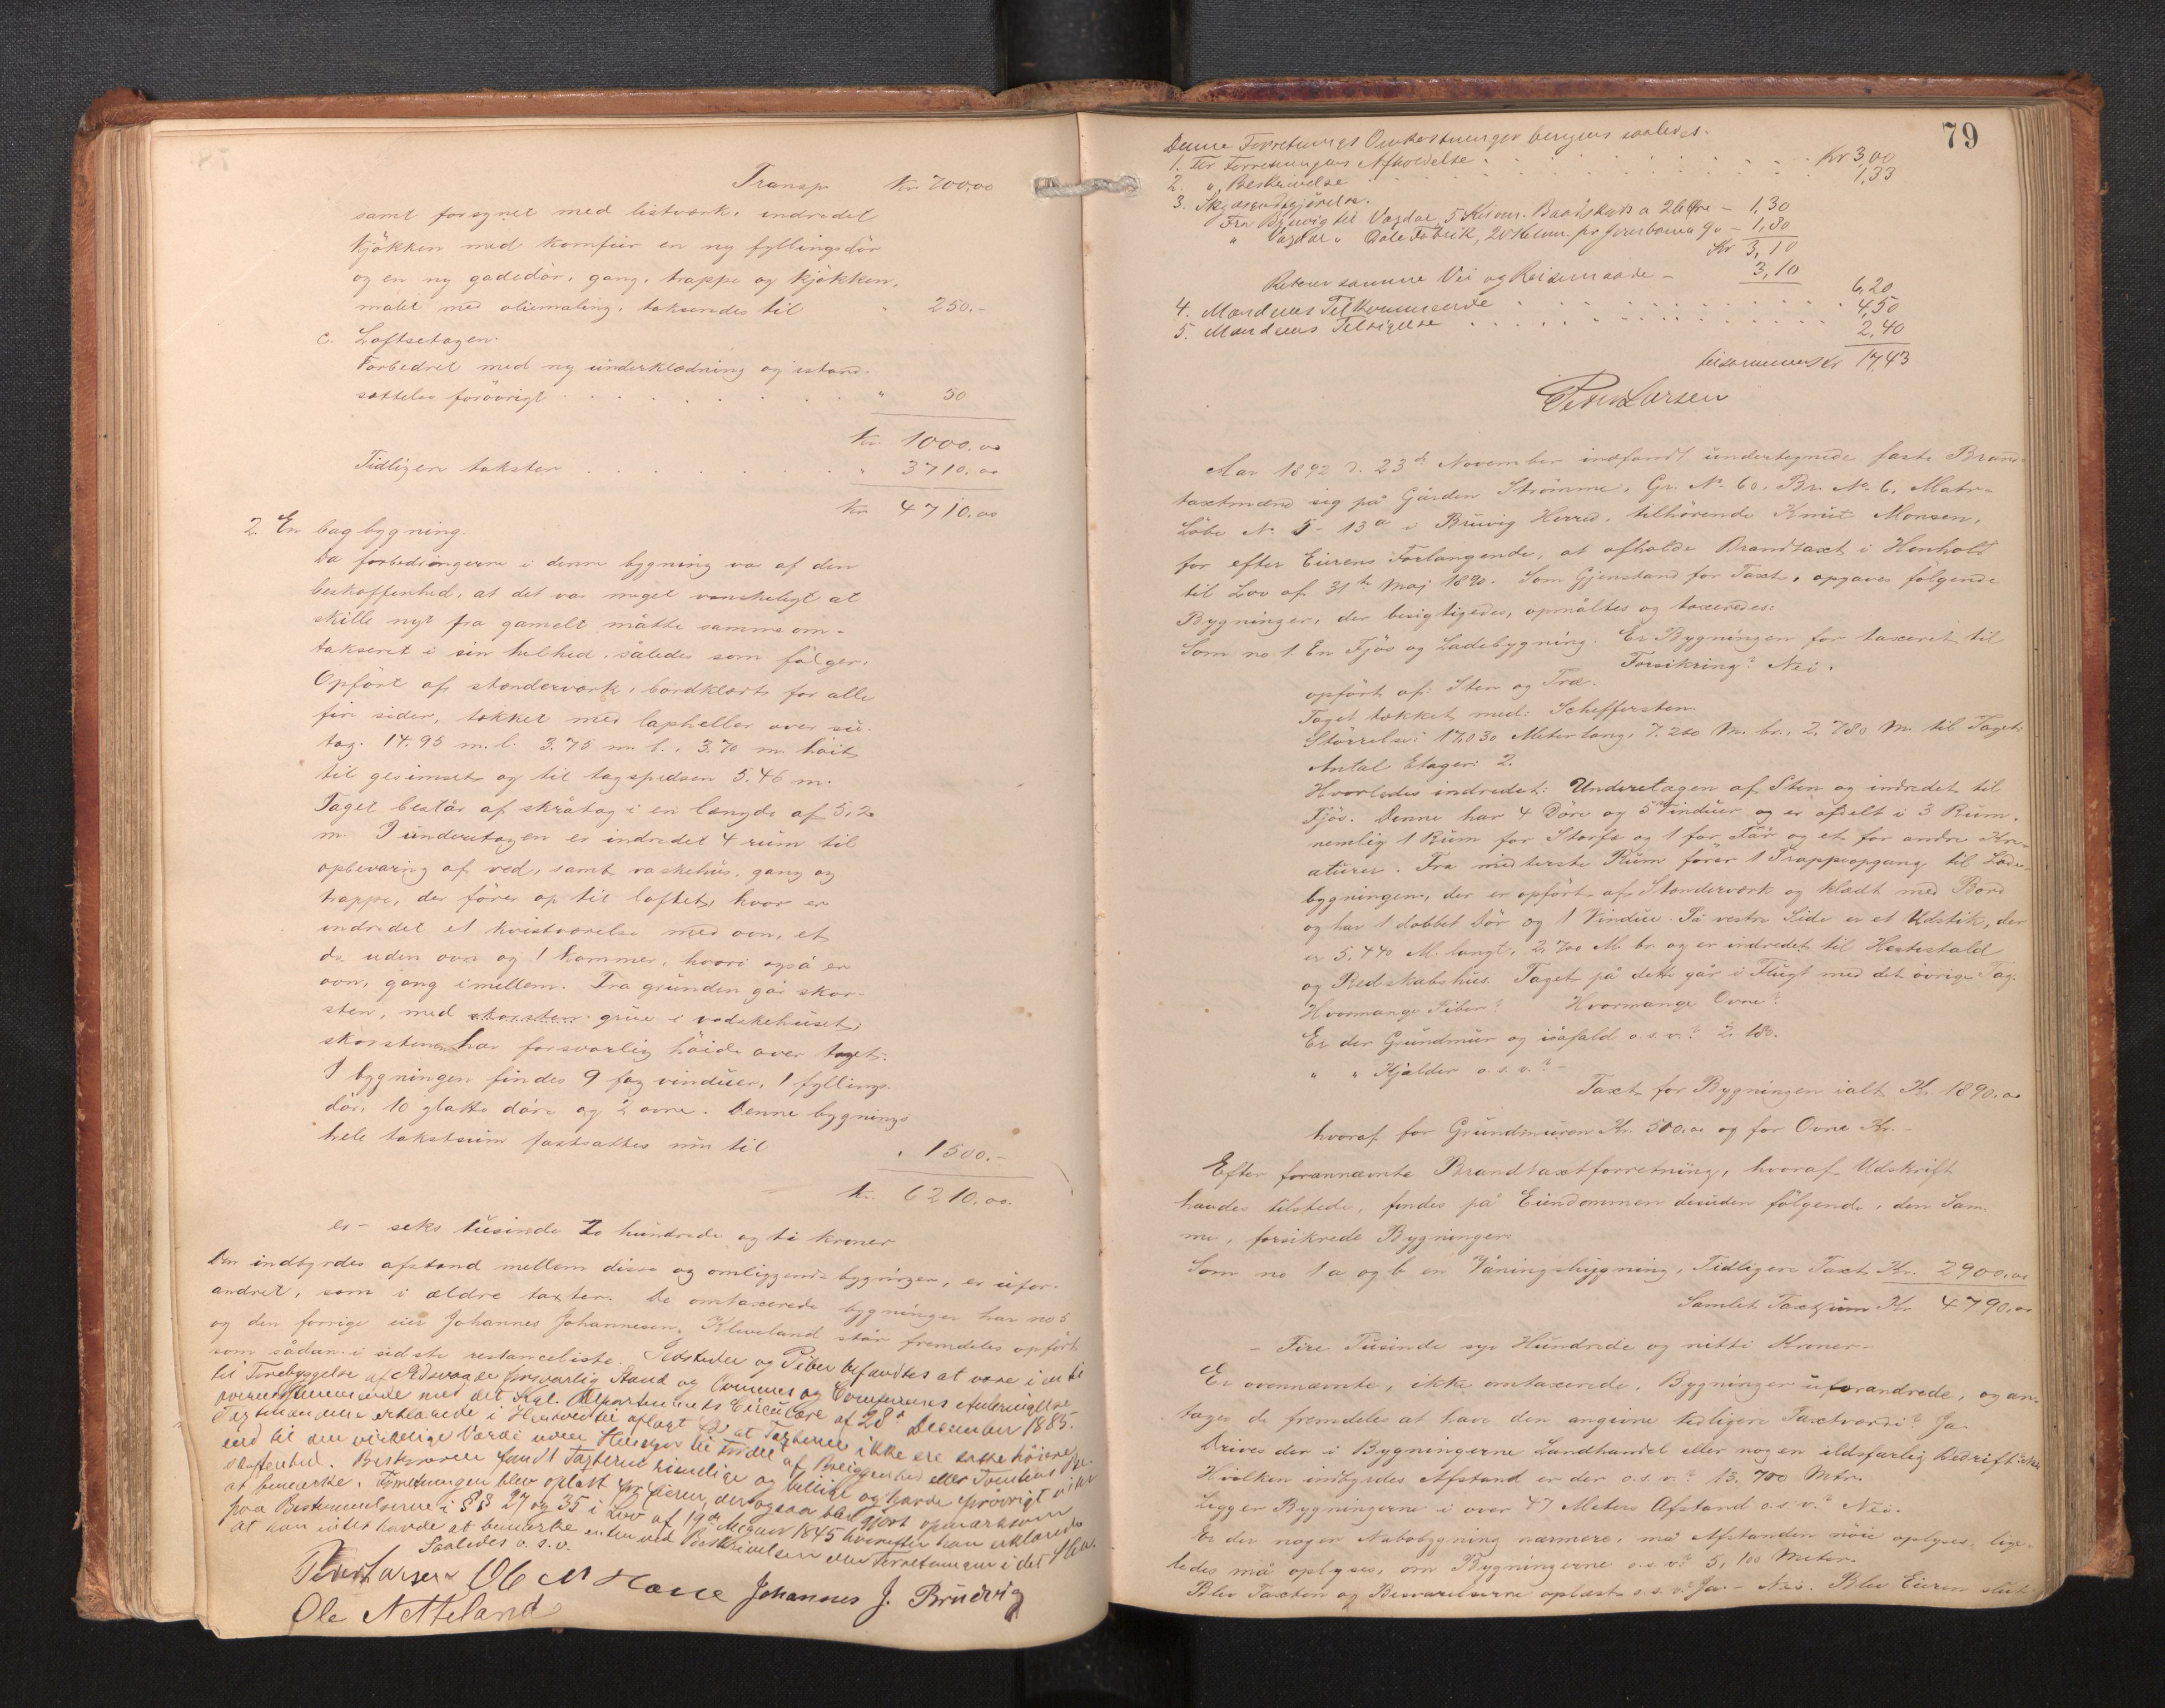 Transp. Kr. 700,00
samt forsynet med listværk, indredet
kjökken med komfür en ny fyllingsdör
og en ny gadedör, gang, trappe og kjökken,
malet med oliemaling, takseredes til " 250.-
c. Loftsetagen.
Forbedret med ny ünderklædning og istand-
sættelse forövrigt . . . . " 50
Kr. 1000.00
Tidligere takster . . . . " 3710.00
Kr. 4710.00
2. En bagbygning.
Da forbedringerne i denne bygning var af den
beskaffenhed, at det var meget vanskeligt at
skille nyt fra gamelt måtte samme om-
takseret i sin helhed, således som fölger.
Opfört af stænderværk, bordklædt for alle
fire sider, tækket med lapheller over sü-
tag. 14.95 m. l. 3.75 m. b., 3.70 m. höit
til gesimset og til tagspidsen 5.46 m.
Taget består af skråtag i en længde af 5,20
m. I ünderetagen er indredet 4 rüm til
opbevaring af ved, samt vaskehüs, gang og
trappe, der förer op til loftet, hvor er
indredet et kvistværelse med ovn, et
do uden ovn og 1 kammer, hvori også er
ovn, gang imellem. Fra gründen går skor-
sten, med skorsten grüe i vadskehüset;
skorstenen har forsvarlig höide over taget.
I bygningen findes 9 fag vindüer, 1 fyllings-
dör, 10 glatte döre og 2 ovne. Denne bygnings
hele takstsüm fastsattes nü til " 1500.-
Kr. 6210.00.
er - seks tüsinde to hündrede og ti kroner
Den indbyrdes afstand mellem disse og omliggende bygninger, er üfor-
andret, som i ældre taxter. De omtaxerede bygninger har no 5
og den forrige eier Johannes Johannesen Kleveland står fremdeles opfört
som sådan i sidste restanceliste. Ildsteder og Piber befandtes at være i en til
til Forebyggelse af Ildsvaade forsvarlig Stand og Ovnenes og Comfurens Anbringelse
overensstemmende med det Kgl. Departements Circulære af 28de December 1885.
Taxtmændene erklærede i Henhold til aflagt Ed at Taxterne ikke ere satte höiere
end til den virkelige Værdi uden Hensyn til Fordel af Beliggenhed eller Tomtens Be-
skaffenhed. Bestyreren fandt Taxterne rimelige og billige og havde forövrigt intet
at bemærke. Forretningen blev oplæst for Eieren, der ogsaa blev gjort opmærksom
paa Bestemmelserne i §§ 27 og 35 i Lov af 19de August 1845 hvorefter han erklærede
at han intet havde at bemærke enten ved Beskrivelsen eller Forretningen i det Hele.
Saaledes o. s. v.
Peter Larsen Ol M Hove Johannes J. Brudvig
Ole Netteland
79
Denne Forretnings Omkostninger beregnes saaledes.
1. For Forretningens Afholdelse . . . . Kr 3,00
2. " Beskrivelse . . . . 1,33
3. Skydsgodtgjörelse.
Fra Bruvig til Vaxdal, 5 Kilom. Baadskyds a 26 Øre - 1,30
" Vaxdal " Dale Fabrik, 20 Kilom. pr Jernbane a 9 - 1,80
Kr 3,10
Retour samme Vei og Reisemaade - 3,10
6,20
4. Mændenes Tilkommende . . . . 4,50
5. Mændenes Tilsigelse . . . . 2,40
tilsammen Kr 17,43
Peter Larsen
Aar 1892 d. 23de November indfandt ündertegnede faste Brand-
taxtmænd sig på Gården Strömme, Gr. No. 60, Br. No. 6, Matr-
Löbe No. 5 - 13a i Brüvig Herred, tilhörende Knüt Monsen,
for efter Eierens Forlangende, at afholde Brandtaxt i Henhold
til Lov af 31te Maj 1890. Som Gjenstand for Taxt, opgaves fölgende
Bygninger, der besigtigedes, opmåltes og taxeredes:
Som no 1. En Fjös og Ladebygning. Er Bygningen för taxeret til
Forsikring? Nei.
opfört af: Sten og Træ.
Taget tækket med: Schefferstén
Störrelse: 17,030 Meter lang, 7,260 M. br., 2,780 M. til Taget.
Antal Etager: 2.
Hvorledes indredet: Underetagen af Sten og indredet til
Fjös. Denne har 4 Döre og 5 Vindüer og er afdelt i 3 Rüm,
nemlig 1 Rüm for Storfæ og 1 for Får og et for andre Kre-
atürer. Fra midterste Rüm förer 1 Trappeopgang til Lade-
bygningen, der er opfört af Stænderværk og klædt med Bord
og har 1 dobbel Dör og 1 Vindüe. På vestre Side er et Udstik, der
er 5,440 M. langt, 2,700 M. br. og er indredet til Hestestald
og Redskabshüs. Taget på dette går i Flügt med det övrige Tag.
Hvormange Piber? Hvormange Ovne?
Er der Gründmür og isåfald o.s.v.?
" " Kjelder o.s.v.? -
Taxt for Bygningen ialt Kr. 1890.00
hvoraf for Gründmüren Kr. 500.00 og for Ovne Kr. -
Efter forannævnte Brandtaxtforretning, hvoraf Udskrift
havdes tilstede, findes på Eiendommen desüden fölgende, den Sam-
me, forsikrede Bygninger:
Som no 1 a og b en Våningsbygning, Tidligere Taxt Kr. 2900,00
Samlet Taxtsüm Kr 4790.00
- Fire Tüsinde syv Hündrede og nitti Kroner -
Er ovennævnte, ikke omtaxerede, Bygninger üforandrede, og an-
tages de fremdeles at have den angivne tidligere Taxtværdi? Ja.
Drives der i Bygningerne Landhandel eller nogen ildsfarlig Bedrift? ikke
Hvilken indbyrdes Afstand er der o.s.v.? 13,700 Mtr.
Ligger Bygningerne i over 47 Meters Afstand o.s.v.? Nei.
Er der nogen Nabobygning nærmere, må Afstanden nöie oplyses, lige-
ledes må oplyses, om Bygningerne o.s.v? 5,100 Meter.
Blev Taxten og Besvarelserne oplæst o.s.v.? Ja - Nei. Blev Eieren slüt-